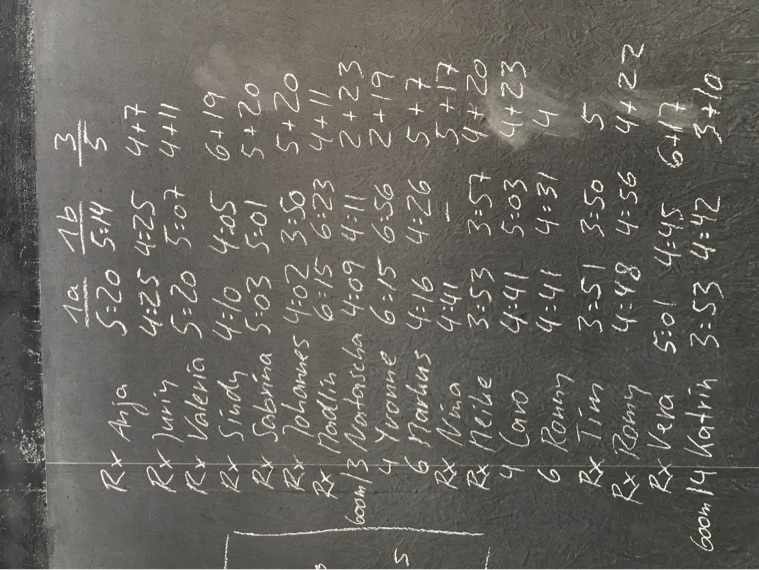 1a 1b 3
Rx Anja 5:20 5:14 5
Rx Jurin 4:25 4:25 4+7
Rx Valeria 5:20 5:07 4+11
Rx Sindy 4:10 4:05 6+19
Rx Sabrina 5:03 5:01 5+20
Rx Johannes 4:02 3:50 5+20
Rx Madlin 6:15 6:23 4+11
600m/3 Natascha 4:09 4:11 2+23
4 Yvonne 6:15 6:56 2+19
6 Markus 4:16 4:26 5+7
Rx Nina 4:41 — 5+17
Rx Meike 3:53 3:57 4+20
4 Caro 4:41 5:03 4+23
6 Ronny 4:41 4:31 4
Rx Tim 3:51 3:50 5
Rx Romy 4:48 4:56 4+22
Rx Vera 5:01 4:45 6+17
600m/4 Katrin 3:53 4:42 3+10
5